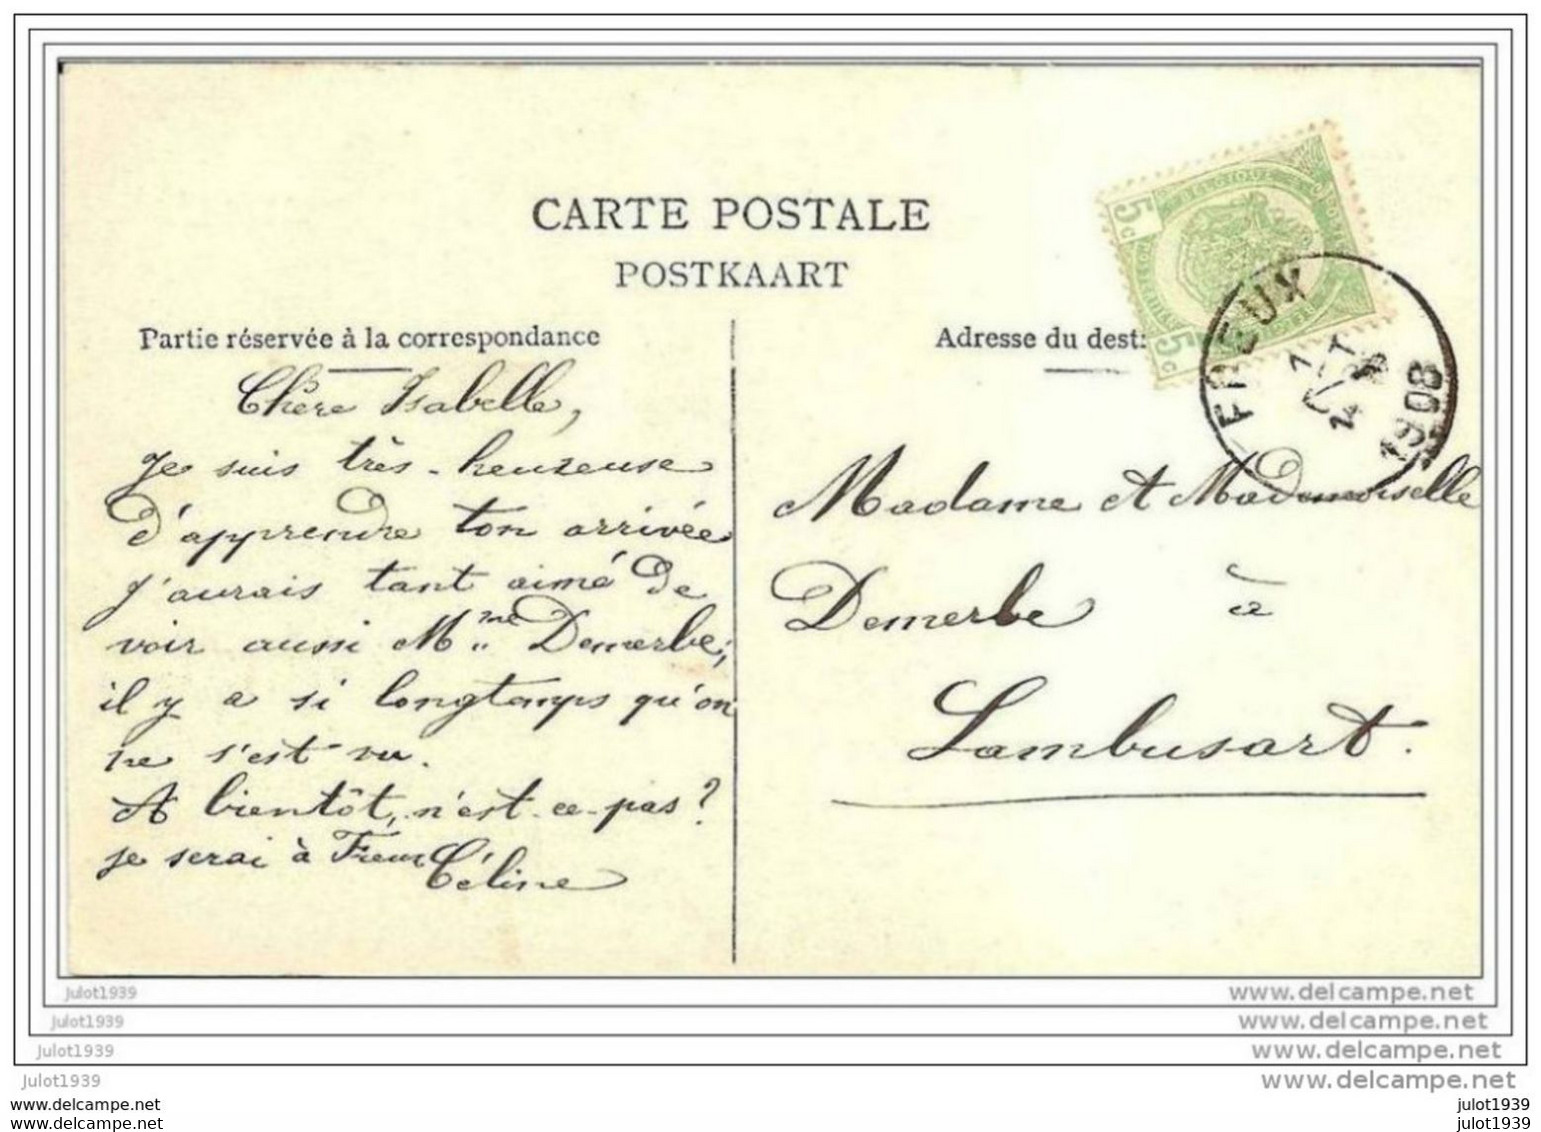 CARTE POSTALE
POSTKAART
Partie réservée à la correspondance
Adresse du dest:
BELGIQUE
5c
5c
FREUX
1908
Chère Isabelle,
Je suis très-heureuse
d'apprendre ton arrivée
j'aurais tant aimé de
voir aussi Mme Demerbe;
il y a si longtemps qu'on
ne s'est vu.
A bientôt, n'est-ce-pas?
je serai à Freux
Céline
Madame et Mademoiselle
Demerbe à
Lambusart.
julot1939
www.delcampe.net
julot1939
www.delcampe.net
julot1939
www.delcampe.net
julot1939
www.delcampe.net
www.delcampe.net
julot1939
www.delcampe.net
julot1939